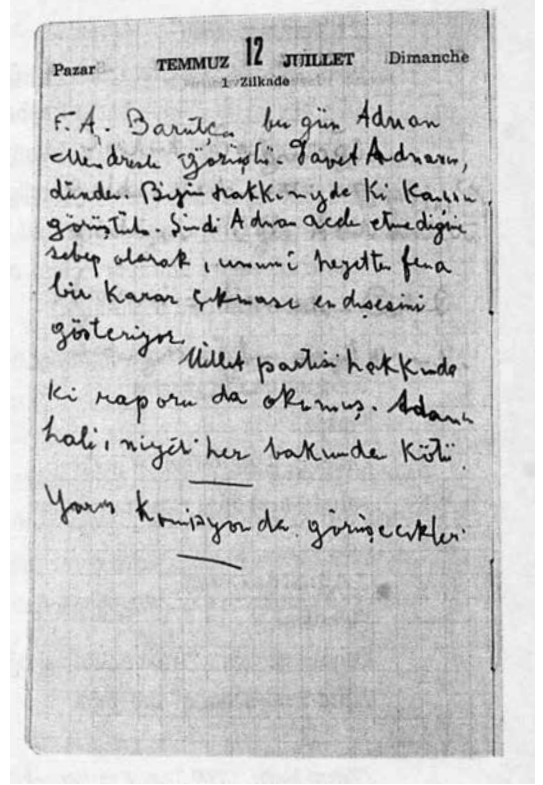 Pazar TEMMUZ 12 JUILLET Dimanche
1 Zilkade
F. A. Barutçu bu gün Adnan
Menderesle görüştü. Davet Adnanın,
dünden. Bizim hakkımızda ki kanun
görüştüler. Şimdi Adnan acele etmediğine
sebep olarak, umumî heyetten fena
bir karar çıkması endişesini
gösteriyor.
Millet partisi hakkında
ki raporu da okumuş. Adamın
hali, niyeti her bakımdan kötü.
Yarın komisyonda görüşecekler.